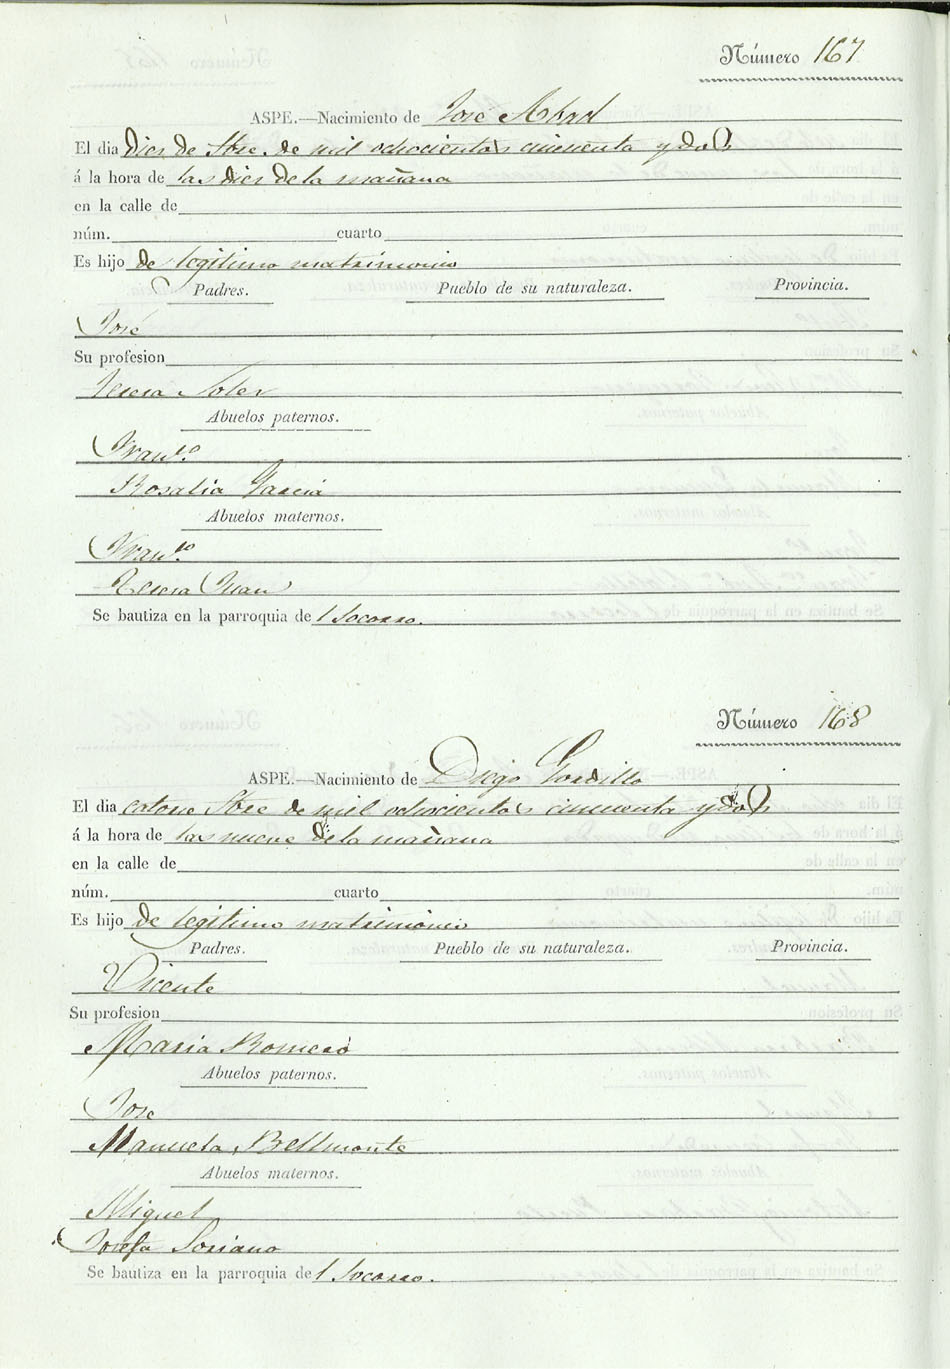 Número 167
ASPE.—Nacimiento de José Abad
El dia dies de Sbre. de mil ochocientos cincuenta y dos
á la hora de las dies de la mañana
en la calle de
núm. cuarto
Es hijo de legitimo matrimonio
Padres. Pueblo de su naturaleza. Provincia.
José
Su profesion
Teresa Soler
Abuelos paternos.
Franco.
Rosalia Garcia
Abuelos maternos.
Franco.
Teresa Juan
Se bautiza en la parroquia del Socorro.
Número 168
ASPE.—Nacimiento de Diego Gordillo
El dia catorse Sbre de mil ochocientos cincuenta y dos
á la hora de las nueve de la mañana
en la calle de
núm. cuarto
Es hijo de legitimo matrimonio
Padres. Pueblo de su naturaleza. Provincia.
Vicente
Su profesion
Maria Romero
Abuelos paternos.
Jose
Manuela Bellmonte
Abuelos maternos.
Miguel
Josefa Soriano
Se bautiza en la parroquia del Socorro.